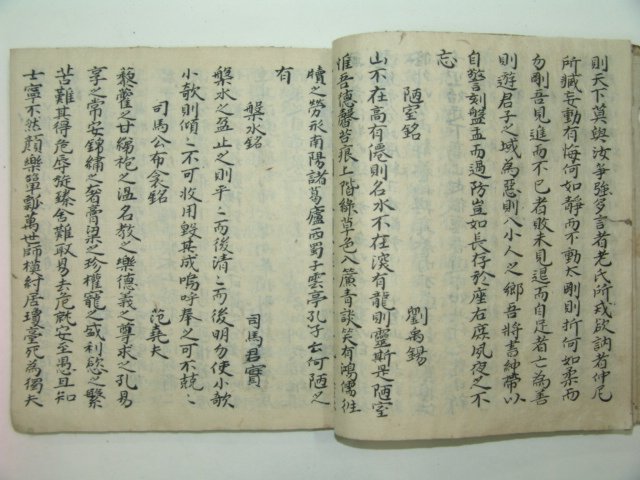 則天下莫與汝爭強多言者老氏所戒欲訥者仲尼
所臧妄動有悔何如靜而不動太剛則折何如柔而
勿剛吾見進而不已者敗未見退而自足者亡為善
則遊君子之域為惡則入小人之鄉吾將書紳帶以
自警刻盤盂而過防豈如長存於座右庶夙夜之不
忘
陋室銘 劉禹錫
山不在高有僊則名水不在深有龍則靈斯是陋室
惟吾德馨苔痕上階綠草色入簾青談笑有鴻儒往
牘之勞形南陽諸葛廬西蜀子雲亭孔子云何陋之
有
槃水銘 司馬君實
槃水之盈止之則平〻而後清〻而後明勿使小欹
小欹則傾〻不可收用毀其成嗚呼奉之可不兢〻
司馬公布衾銘 范堯夫
藜藿之甘綈袍之溫名教之樂德義之尊求之孔易
享之常安錦繡之奢膏粱之珍權寵之盛利慾之繁
苦難其得危辱旋臻舍難取易去危就安至愚且知
士寧不然顏樂簞瓢萬世師模紂居瓊臺死為獨夫